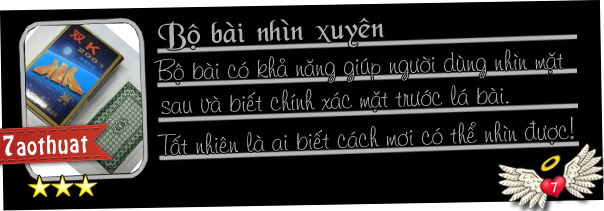 Bộ bài nhìn xuyên
Bộ bài có khả năng giúp người dùng nhìn mặt
sau và biết chính xác mặt trước lá bài.
Tất nhiên là ai biết cách mơi có thể nhìn được!
双K
2001
7aothuat
7